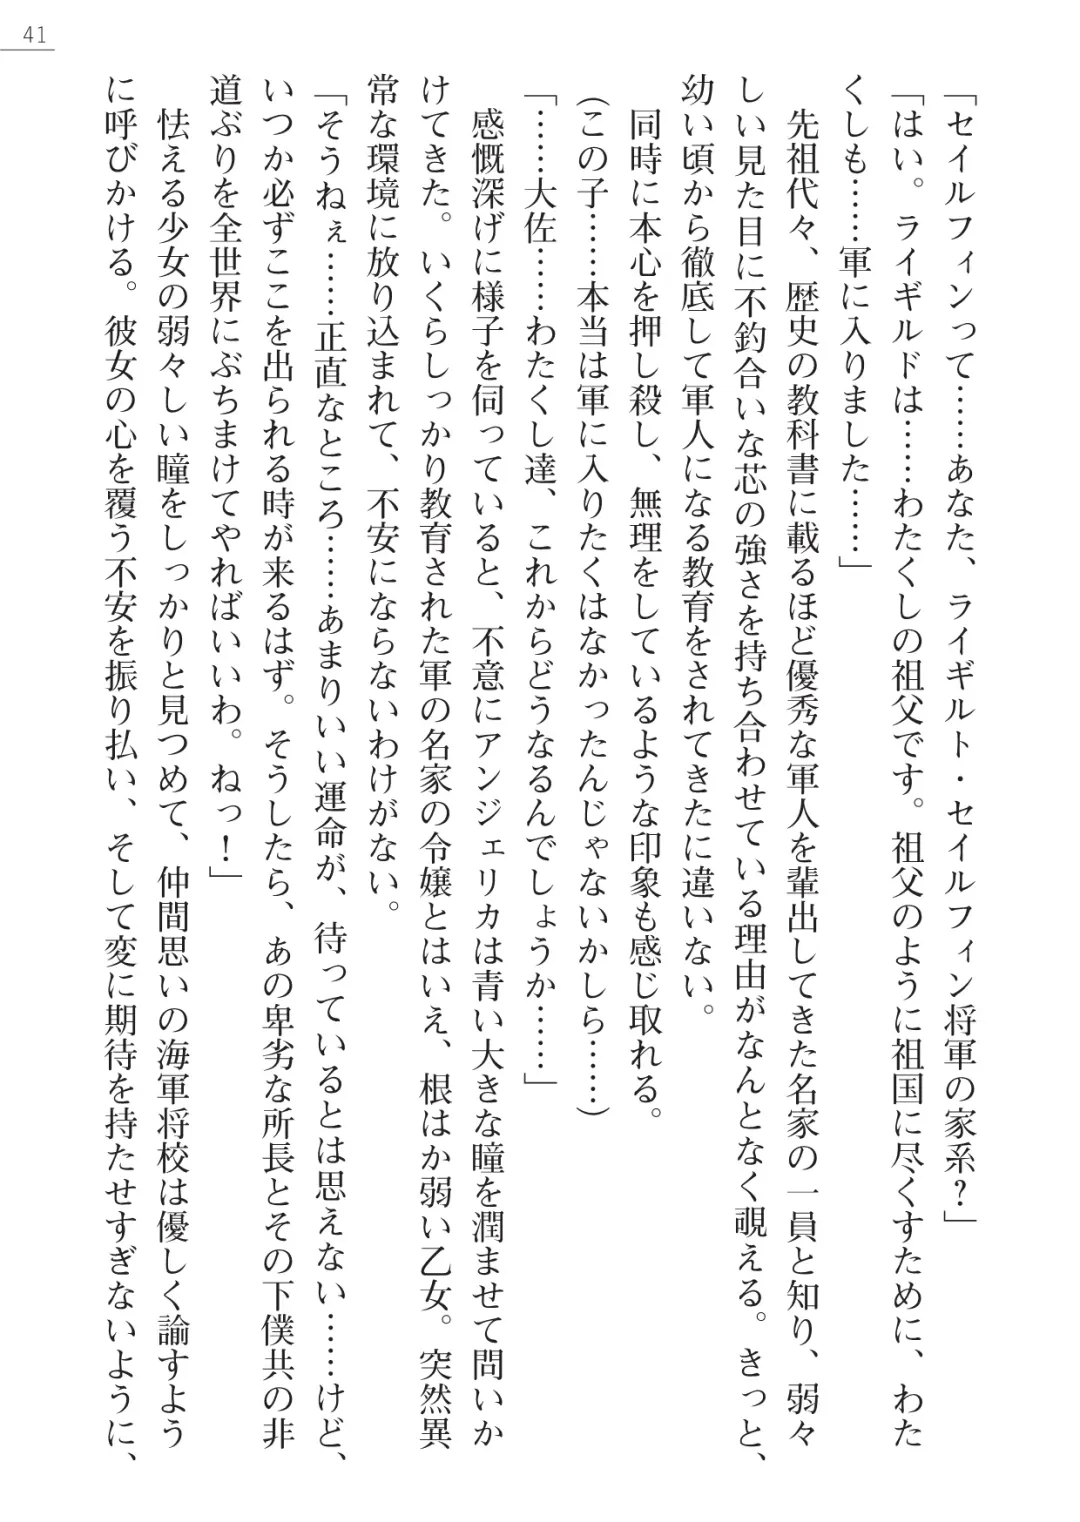 41
「セイルフィンって……あなた、ライギルト・セイルフィン将軍の家系？」
「はい。ライギルドは……わたくしの祖父です。祖父のように祖国に尽くすために、わた
くしも……軍に入りました……」
　先祖代々、歴史の教科書に載るほど優秀な軍人を輩出してきた名家の一員と知り、弱々
しい見た目に不釣合いな芯の強さを持ち合わせている理由がなんとなく覗える。きっと、
幼い頃から徹底して軍人になる教育をされてきたに違いない。
　同時に本心を押し殺し、無理をしているような印象も感じ取れる。
（この子……本当は軍に入りたくはなかったんじゃないかしら……）
「……大佐……わたくし達、これからどうなるんでしょうか……」
　感慨深げに様子を伺っていると、不意にアンジェリカは青い大きな瞳を潤ませて問いか
けてきた。いくらしっかり教育された軍の名家の令嬢とはいえ、根はか弱い乙女。突然異
常な環境に放り込まれて、不安にならないわけがない。
「そうねぇ……正直なところ……あまりいい運命が、待っているとは思えない……けど、
いつか必ずここを出られる時が来るはず。そうしたら、あの卑劣な所長とその下僕共の非
道ぶりを全世界にぶちまけてやればいいわ。ねっ！」
　怯える少女の弱々しい瞳をしっかりと見つめて、仲間思いの海軍将校は優しく諭すよう
に呼びかける。彼女の心を覆う不安を振り払い、そして変に期待を持たせすぎないように、